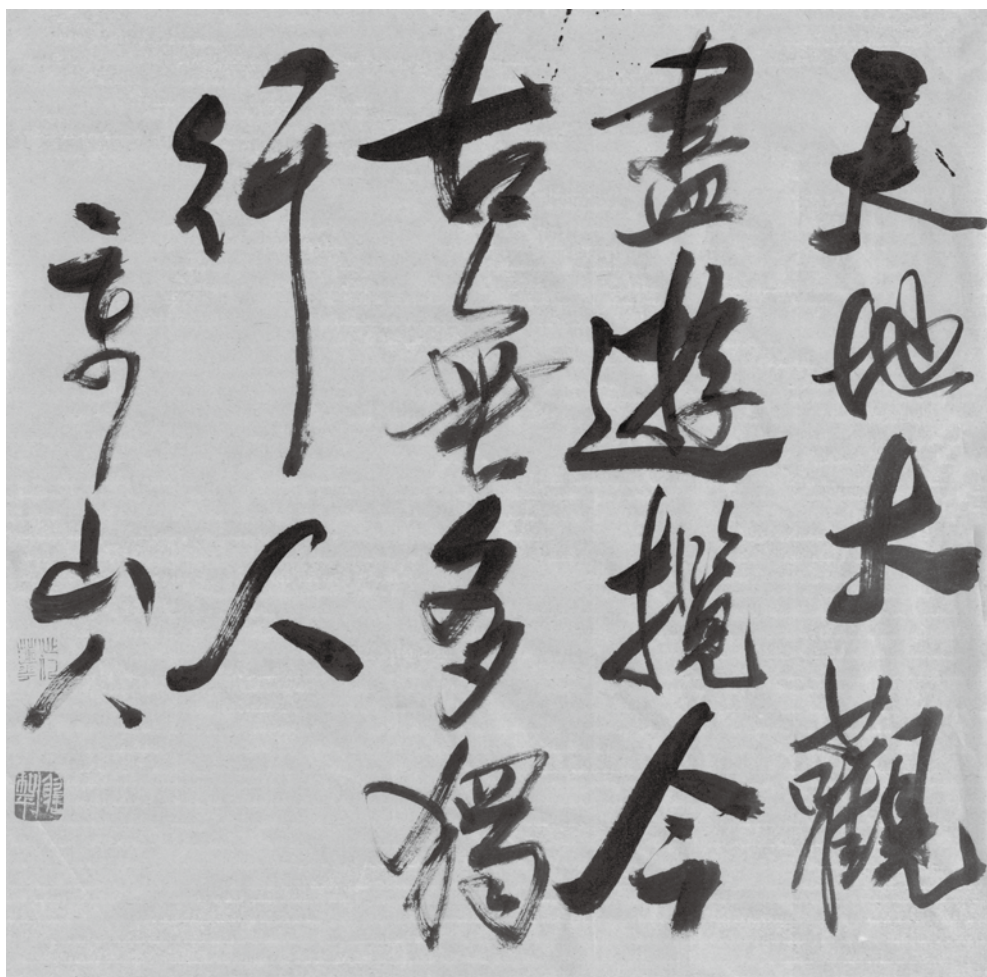 天地大觀
盡遊攬今
古無多獨
行人
山人